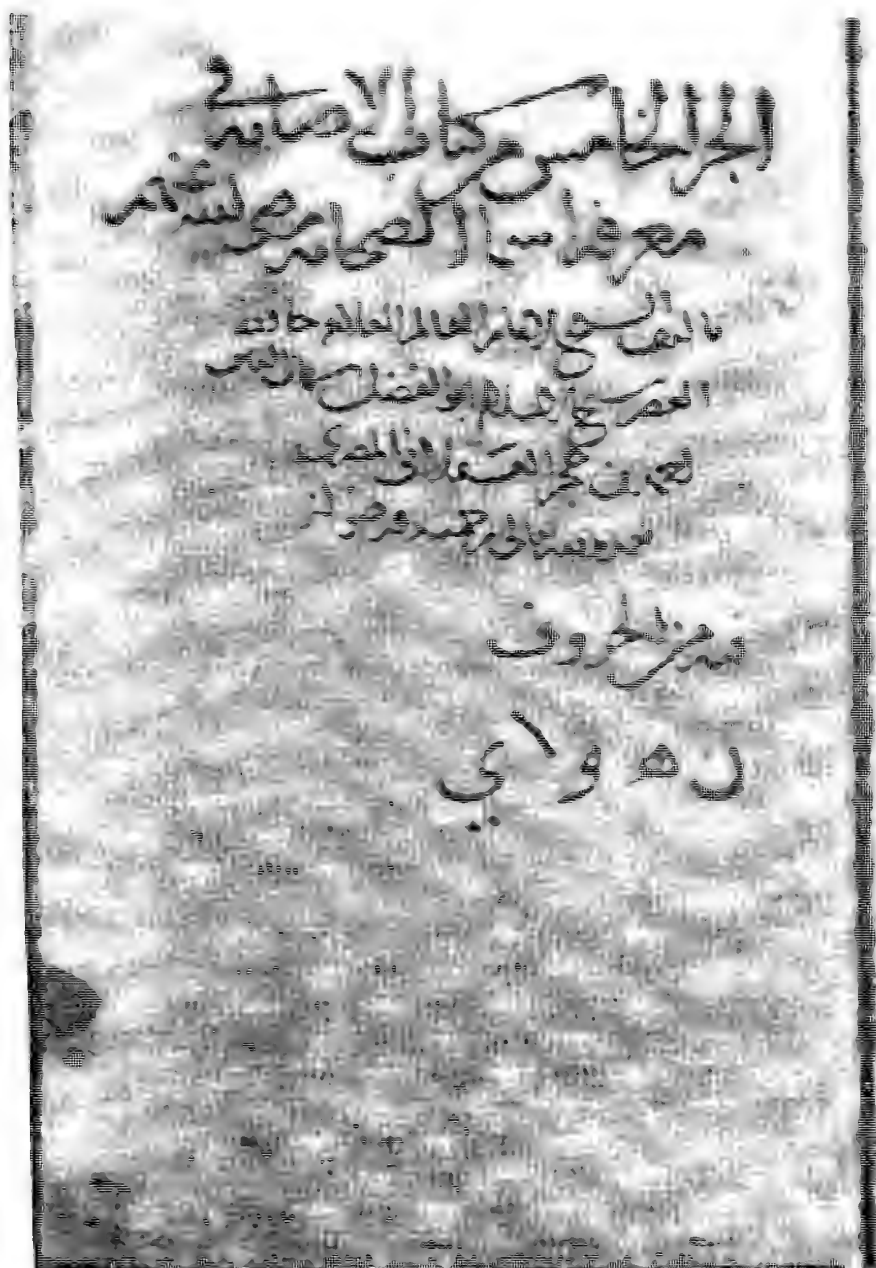 الجزء الخامس من كتاب الاصابه في
معرفة اسما الصحابه رضي الله عنهم
تاليف الشيخ الامام العالم العلامه حافظ
العصر شيخ الاسلام ابو الفضل شهاب الدين
احمد بن حجر العسقلاني المصري
تغمده الله تعالى برحمته ورضوانه
فيه من الحروف
ن ه و لا ي